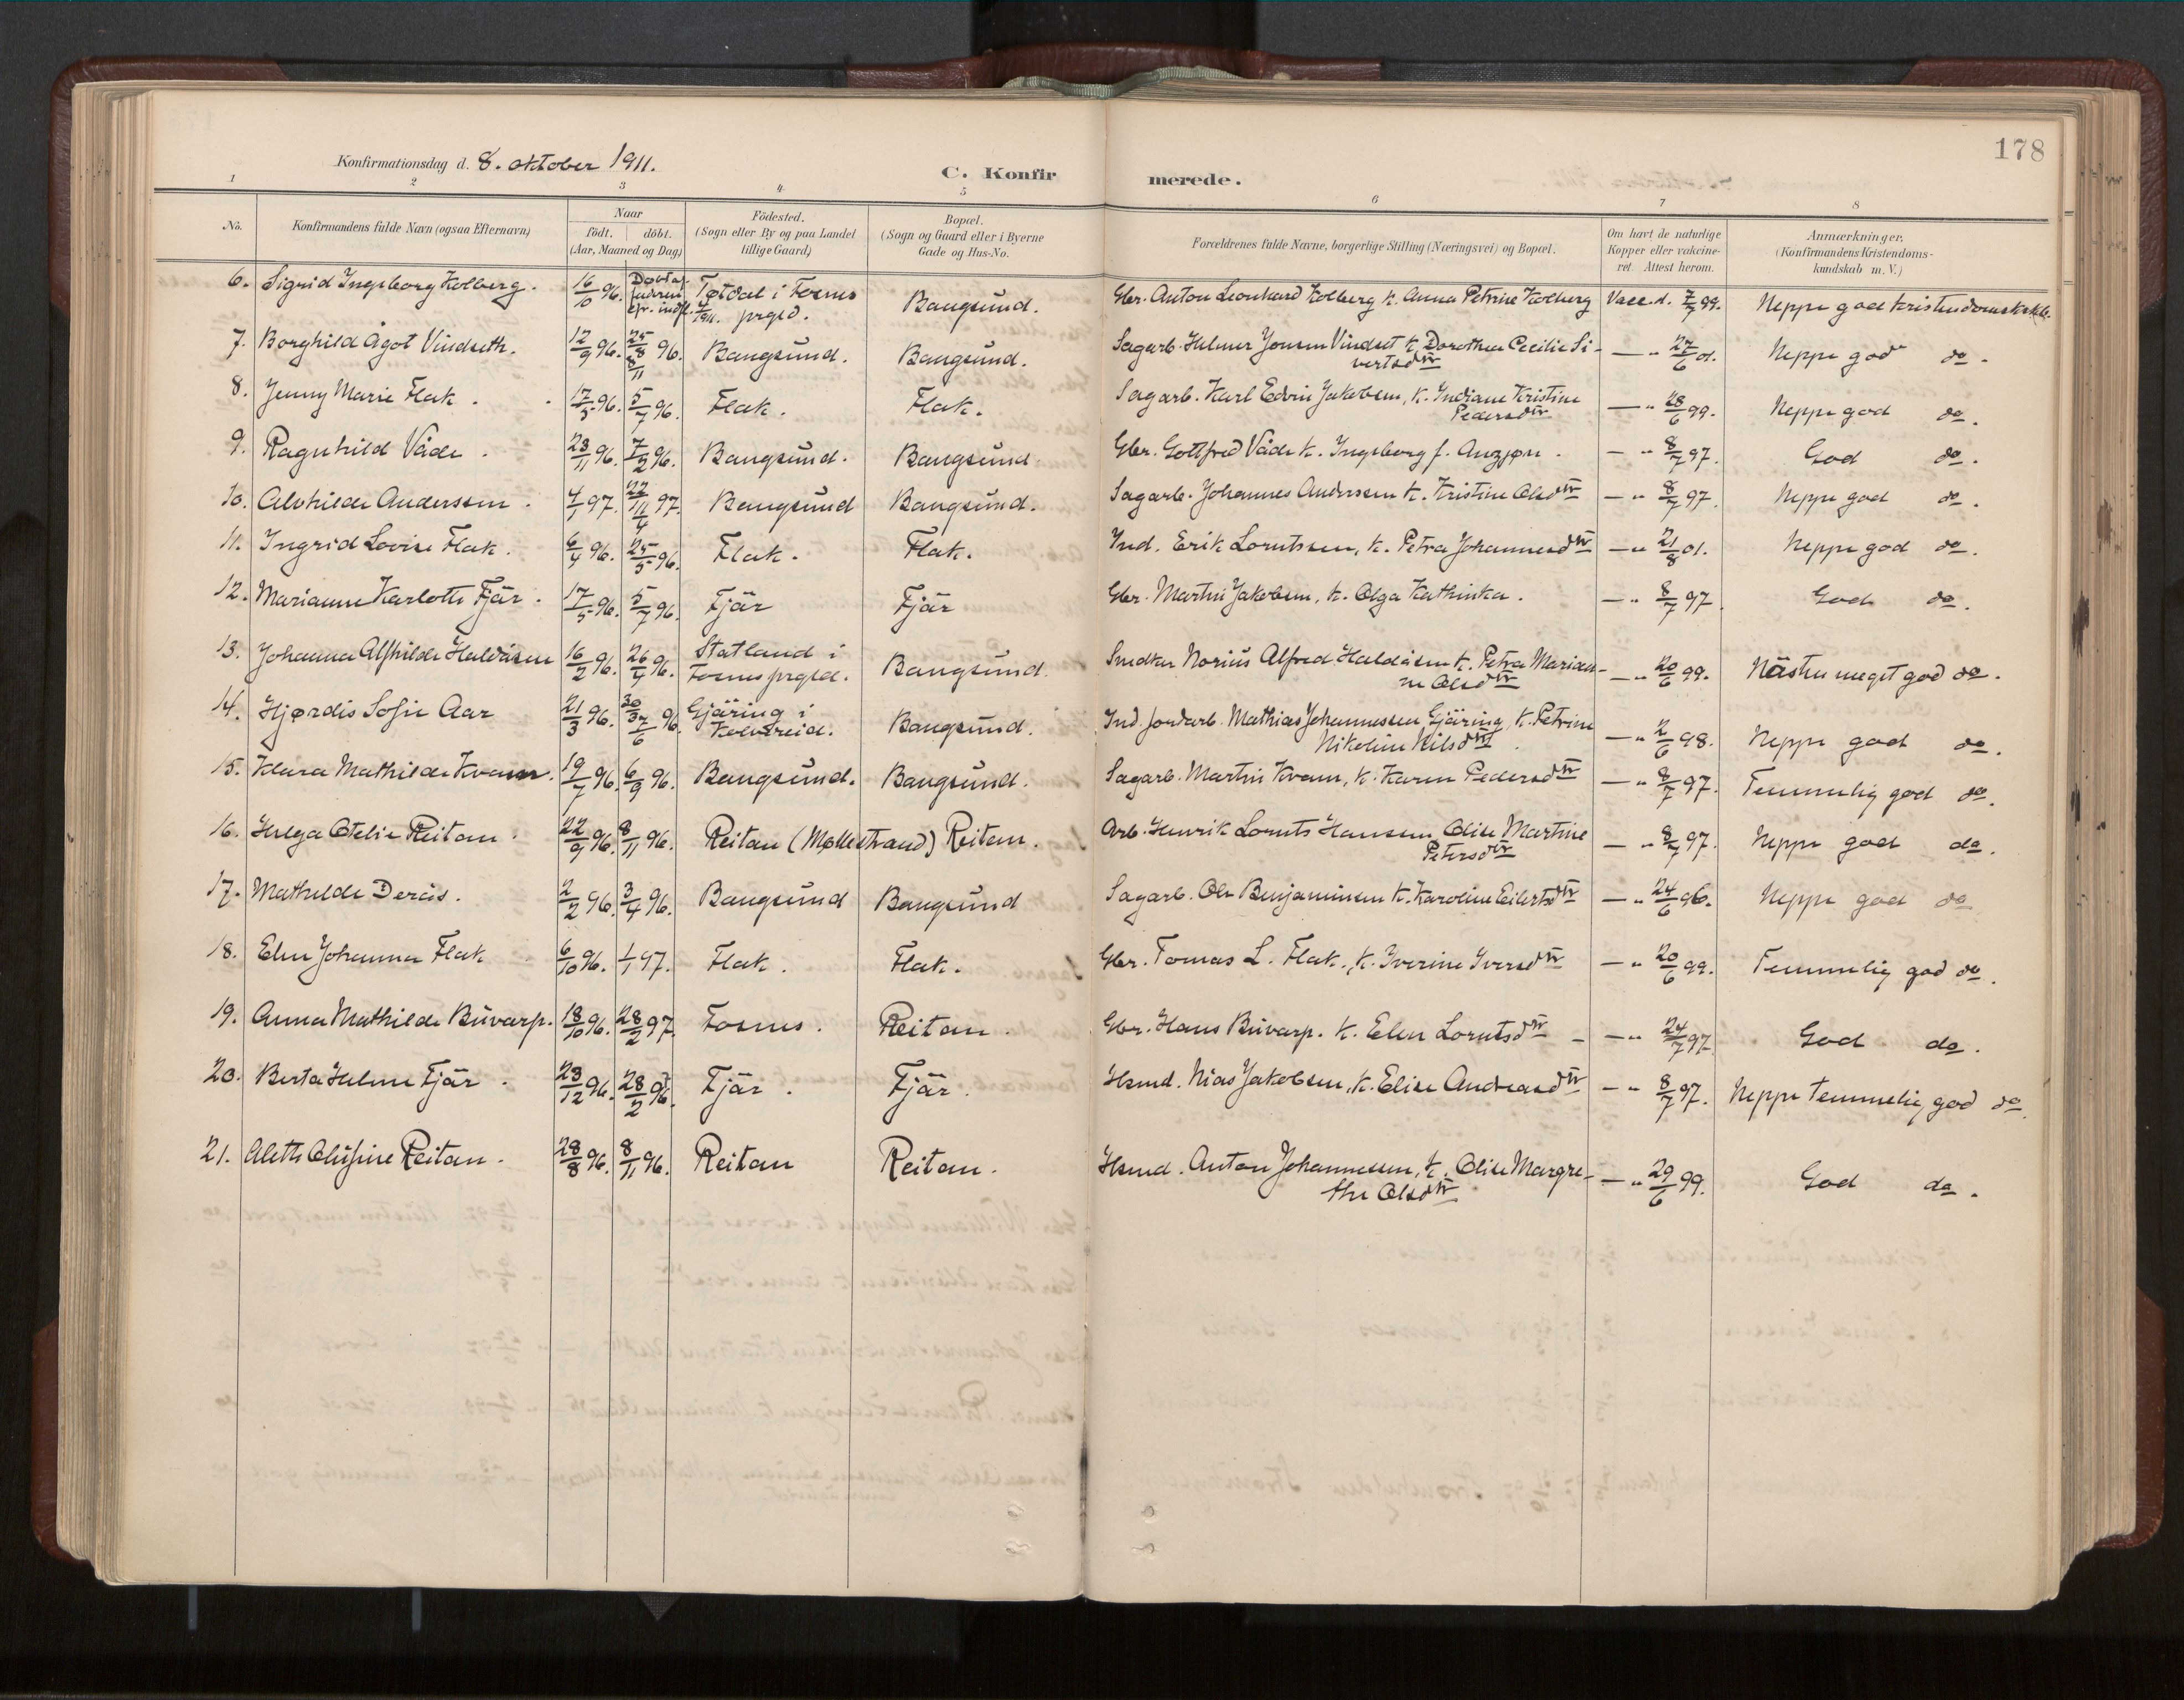 178
Konfirmationsdag d. 8. oktober 1911.
C. Konfirmerede.
1 2 3 4 5 6 7 8
No. Konfirmandens fulde Navn (ogsaa Efternavn) Naar födt. döbt. (Aar, Maaned og Dag) Födested. (Sogn eller By og paa Landet tillige Gaard) Bopæl. (Sogn og Gaard eller i Byerne Gade og Hus-No. Forældrenes fulde Navne, borgerlige Stilling (Næringsvei) og Bopæl. Om havt de naturlige Kopper eller vakcineret. Attest herom. Anmærkninger. (Konfirmandens Kristendomskundskab m. V.)
6. Sigrid Ingeborg Kolberg. 16/10 96. Døbt af i Fosnes prgld. Bangsund. Gbr. Anton Leonhard Kolberg k. Anna Petrine Kolberg Vacc. d. 7/7 99. Neppe god
7. Borghild Ågot Vindseth. 12/9 96. 25/8 96. Bangsund. Bangsund. Sagarb. Helmer Jonsen Vindset k. Dorothea Cecilie Si-
vertsdtr — " 27/6 01. Neppe god do.
8. Jenny Marie Flak. 17/5 96. 5/7 96. Flak. Flak. Sagarb. Karl Edvin Jakobsen, k. Indiane Kristine
Pedersdtr — " 28/6 99. Neppe god do.
9. Ragnhild Våde. 23/11 96. 7/2 96. Bangsund. Bangsund. Gbr. Gottfred Våde k. Ingeborg f. — " 8/7 97. God do.
10. Alvhilde Anderssen. 4/1 97. 22/11 97. Bangsund Bangsund. Sagarb. Johannes Anderssen k. Kristine Olsdtr — " 8/7 97. Neppe god do.
11. Ingrid Lovise Flak. 6/4 96. 25/5 96. Flak. Flak. Ind. Erik Lorntssen, k. Petra Johannesdtr — " 21/8 01. Neppe god do.
12. Marianne Karlotte Fjär. 17/5 96. 5/7 96. Fjär Fjär Gbr. Martin Jakobsen, k. Olga Kathinka. — " 8/7 97. God do.
13. Johanna Alfhilde Haldåsen 16/2 96. 26/4 96. Statland i
Fosnes prgld. Bangsund. Snedker Norius Alfred Haldåsen k. Petra Marian-
ne Olsdtr — " 20/6 99. Nästen meget god do.
14. Hjørdis Sofie Aar 21/3 96. 96. Gjäring i
Kolvereid. Bangsund. Ind. jordarb. Mathias Johannessen Gjäring, k. Petrine
Nikoline Nilsdtr. — " 2/6 98. Neppe god do.
15. Klara Mathilde Kvam. 19/7 96. 6/9 96. Bangsund. Bangsund. Sagarb. Martin Kvam, k. Karen Pedersdtr — " 8/7 97. Temmelig god do.
16. Helga Otelie Reitan. 22/9 96. 8/11 96. Reitan (Møllestrand) Reitan. Arb. Henrik Lornts Hansen, Olise Martine
Petersdtr — " 8/7 97. Neppe god do.
17. Mathilde Deraas. 2/2 96. 3/4 96. Bangsund Bangsund Sagarb. Ole Benjaminsen k. Karoline Eilertsdtr — " 24/6 96. Neppe god do
18. Elen Johanna Flak 6/10 96. 1/1 97. Flak. Flak. Gbr. Tomas L. Flak., k. Iverine Iversdtr — " 20/6 99. Temmelig god do.
19. Anna Mathilde Buvarp. 18/10 96. 28/2 97. Fosnes. Reitan. Gbr. Hans Buvarp. k. Elen Lorntsdtr — — " 24/7 97. God do.
20. Berta Helene Fjär. 23/12 96. 28/2 97. Fjär. Fjär. Hsmd. Nias Jakobsen, k. Elise Andreasdtr — " 8/7 97. Neppe temmelig god do.
21. Aleth Olufine Reitan. 28/8 96. 8/11 96. Reitan Reitan. Hsmd. Anton Johannessen, k. Olise Margre-
the Olsdtr — " 29/6 99. God do.